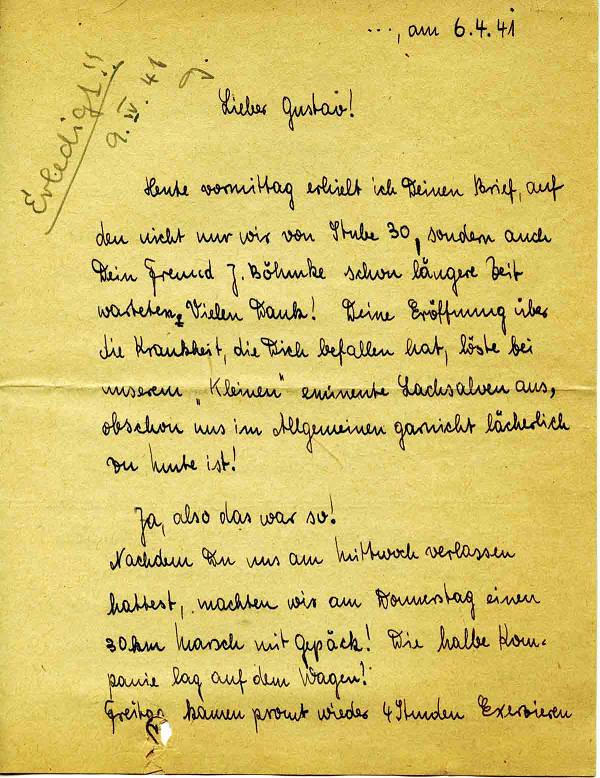 ..., am 6.4.41
Erledigt!!
9. IV. 41
J.
Lieber Gustav!
Heute vormittag erhielt ich Deinen Brief, auf
den nicht nur wir von Stube 30, sondern auch
Dein Freund J. Böhmke schon längere Zeit
warteten. Vielen Dank! Deine Eröffnung über
die Krankheit, die Dich befallen hat, löste bei
unserem „Kleinen“ eminente Lachsalven aus,
obschon uns im Allgemeinen garnicht lächerlich
zu Mute ist!
Ja, also das war so!
Nachdem Du uns am Mittwoch verlassen
hattest, machten wir am Donnerstag einen
30km Marsch mit Gepäck! Die halbe Kom-
panie lag auf dem Wagen!
Freitag kamen promt wieder 4 Stunden Exerzieren